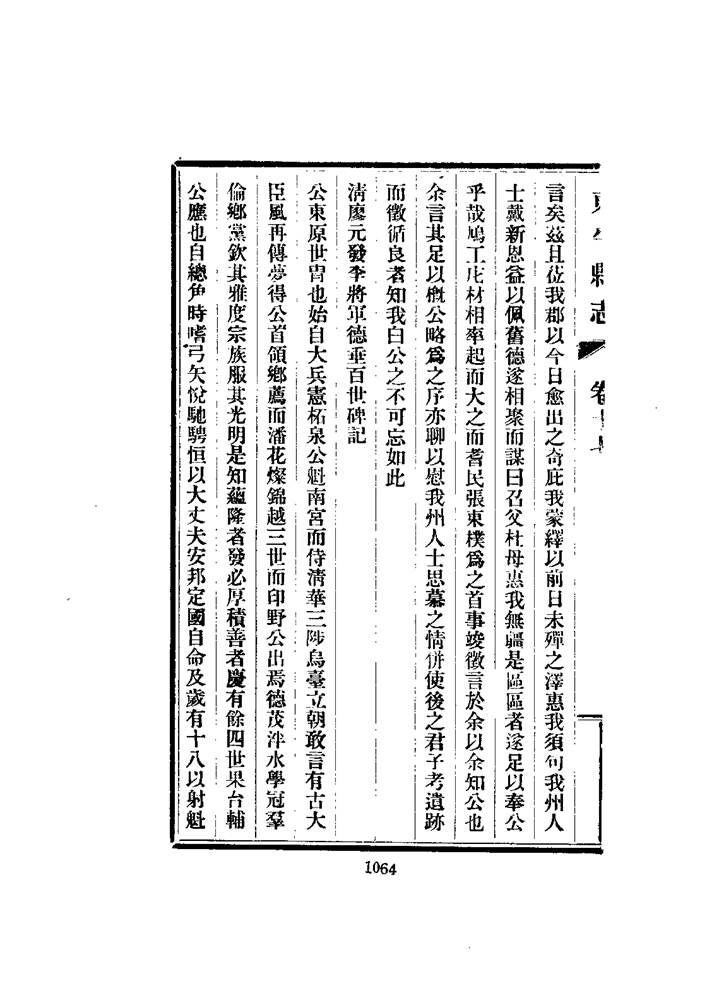 東平縣志 卷十
言矣茲且莅我郡以今日愈出之奇庇我蒙繹以前日未殫之澤惠我須句我州人
士戴新恩益以佩舊德遂相聚而謀曰召父杜母惠我無疆是區區者遂足以奉公
乎哉鳩工庀材相率起而大之而耆民張東樸爲之首事竣徵言於余以余知公也
余言其足以概公略爲之序亦聊以慰我州人士思慕之情併使後之君子考遺跡
而徵循良者知我白公之不可忘如此
清廖元發李將軍德垂百世碑記
公東原世胄也始自大兵憲柘泉公魁南宮而侍清華三陟烏臺立朝敢言有古大
臣風再傳夢得公首領鄉薦而潘花燦錦越三世而印野公出焉德茂泮水學冠羣
倫鄉黨欽其雅度宗族服其光明是知蘊隆者發必厚積善者慶有餘四世果台輔
公應也自總角時嗜弓矢悅馳騁恒以大丈夫安邦定國自命及歲有十八以射魁
1064